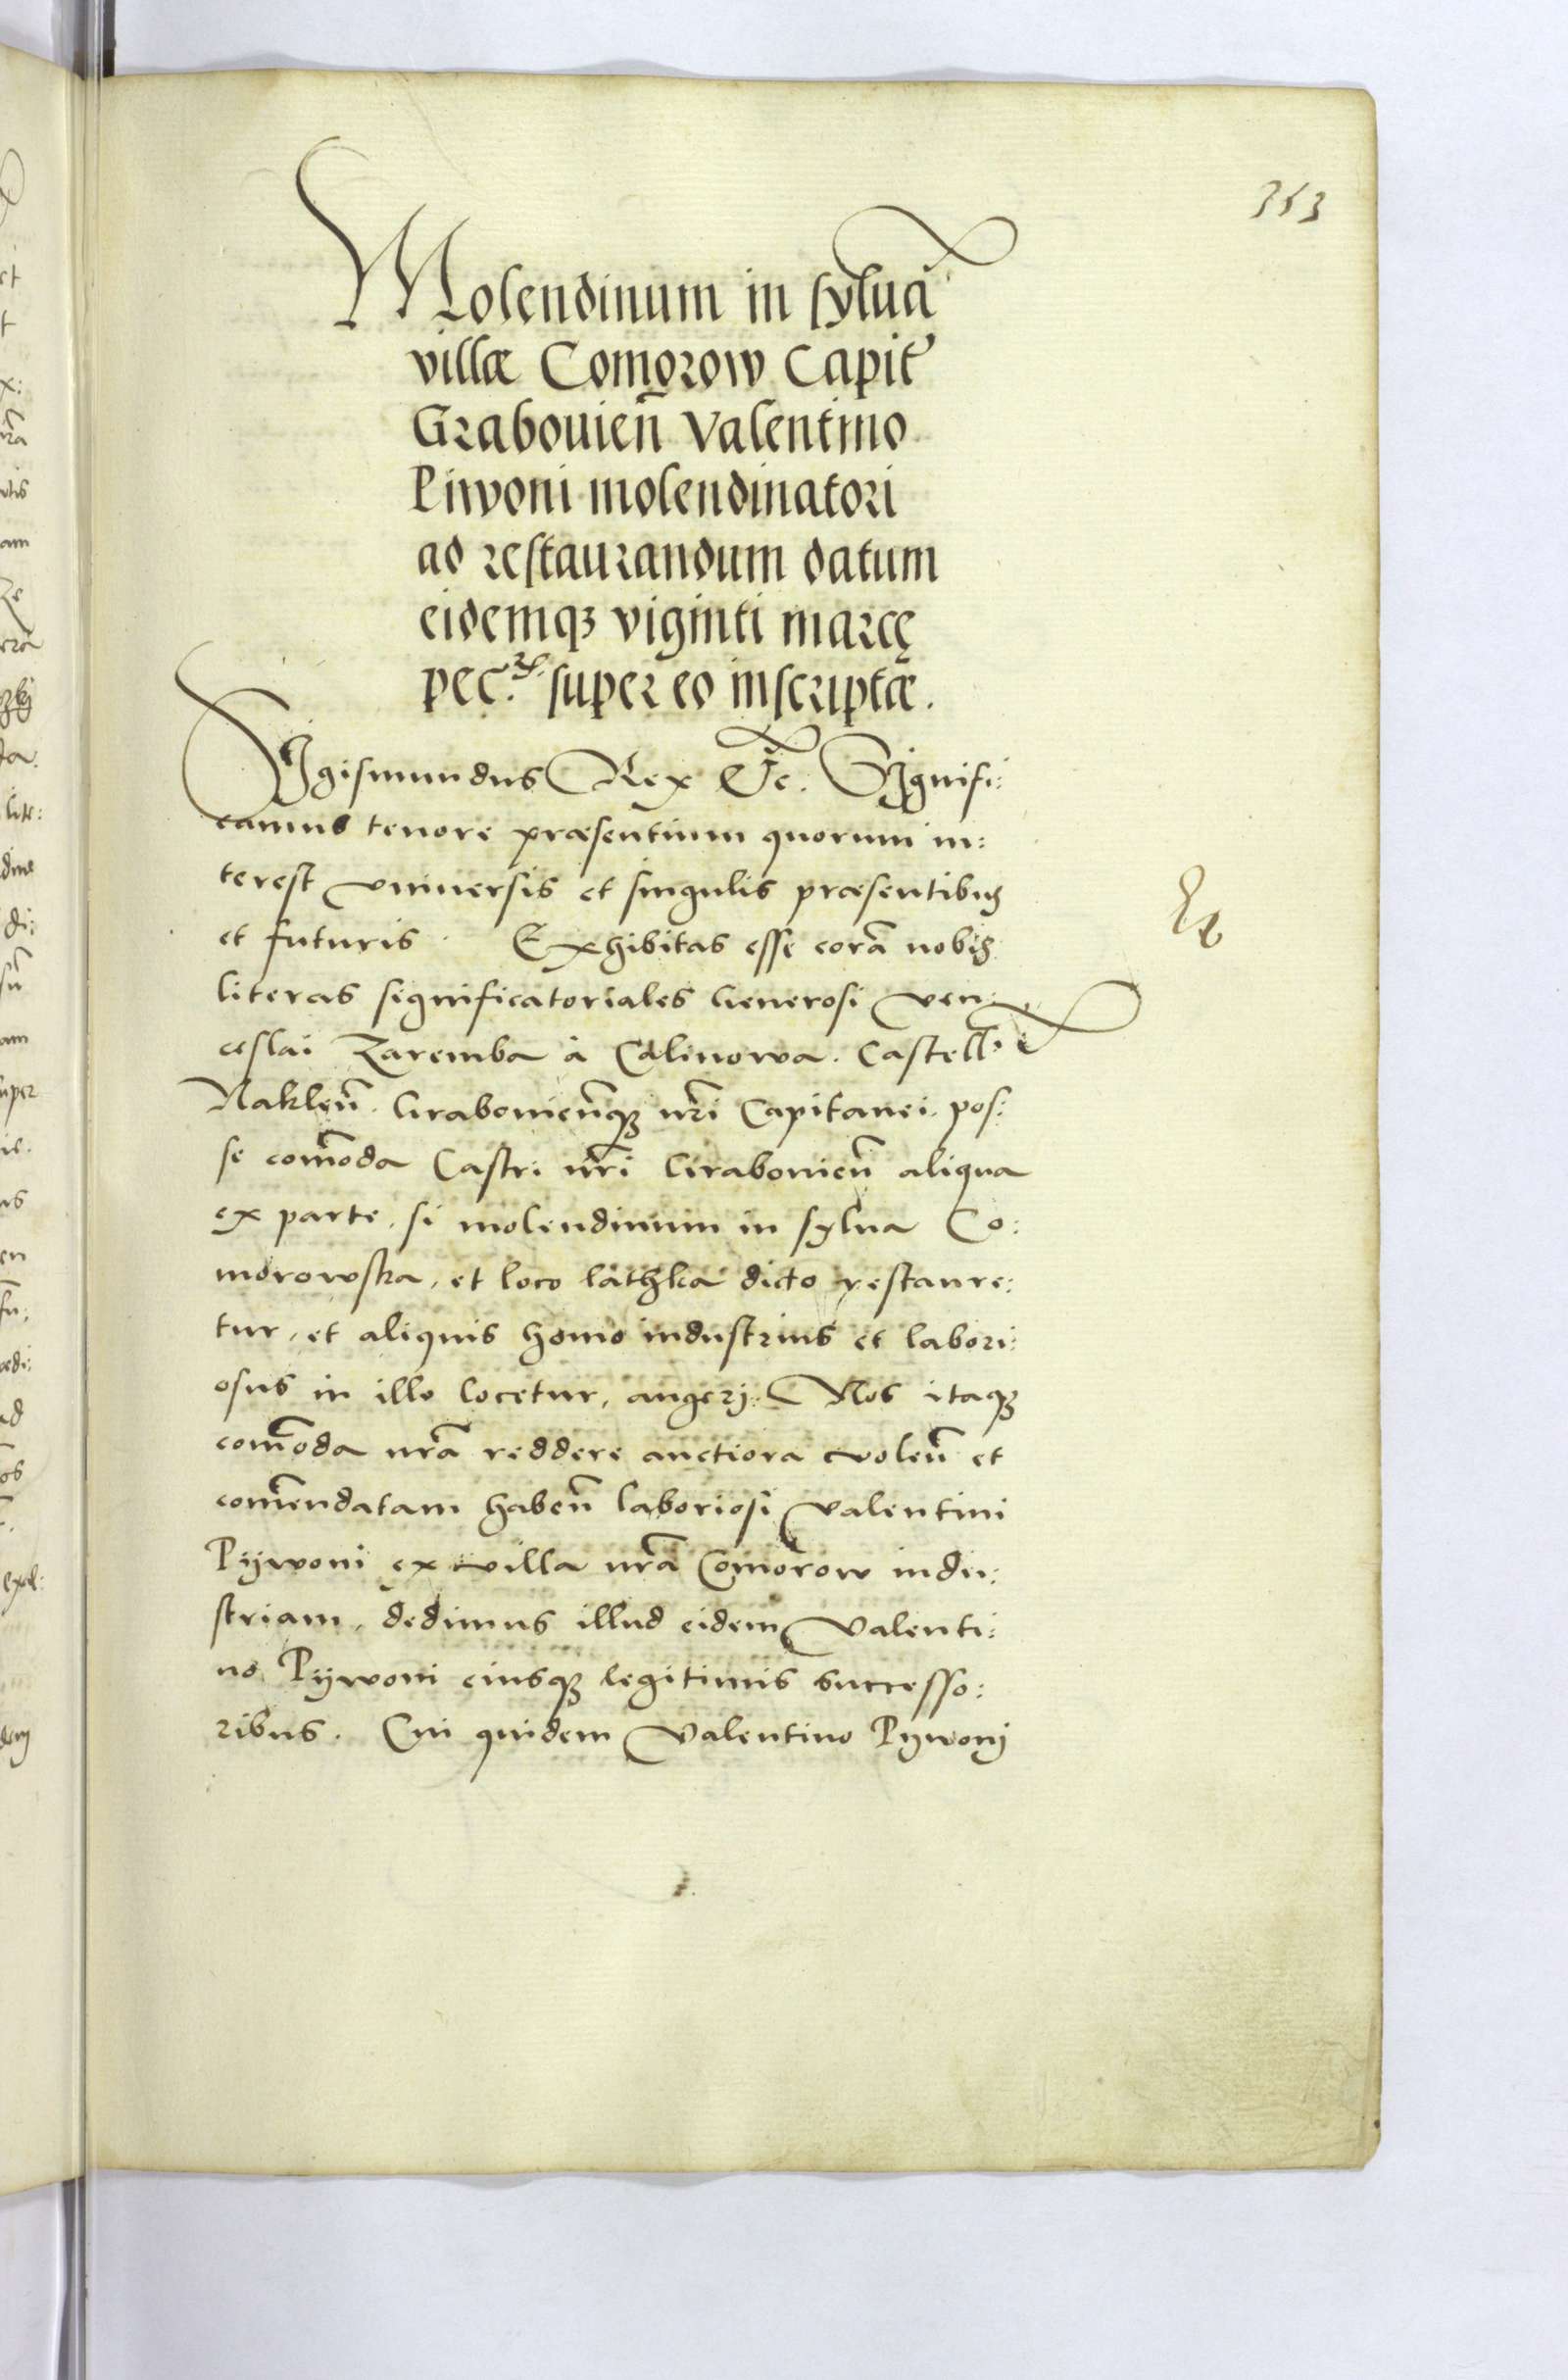 353
Molendinum in sylua
villæ Comorow Capit
Grabouień Valentino
Piwoni molendinatori
ad restaurandum datum
eidemq; viginti marcę
pec. super eo inscriptæ.
Sigismundus Rex Etc. Signifi:
camus tenore præsentium quorum in:
terest vniuersis et singulis præsentibus
et futuris. Exhibitas esse corã nobis
literas significatoriales Generosi Ven:
ceslai Zaremba à Calinowa. Castell
Nakleñ. Grabouieñq; nri Capitanei. pos:
se com̃oda Castri nri Grabouieñ aliqua
ex parte, si molendinum in sylua Co:
morowska, et loco lathka dicto restaure:
tur, et aliquis homo industrius et labori:
osus in illo locetur, augeri. Nos itaq;
com̃oda nrã reddere auctiora voleñ et
com̃endatam habeñ laboriosi Valentini
Pijwoni ex villa nrã Comorow indu:
striam, dedimus illud eidem Valenti:
no Pijwoni eiusq; legitimis successo:
ribus. Cui quidem Valentino Pijwonj